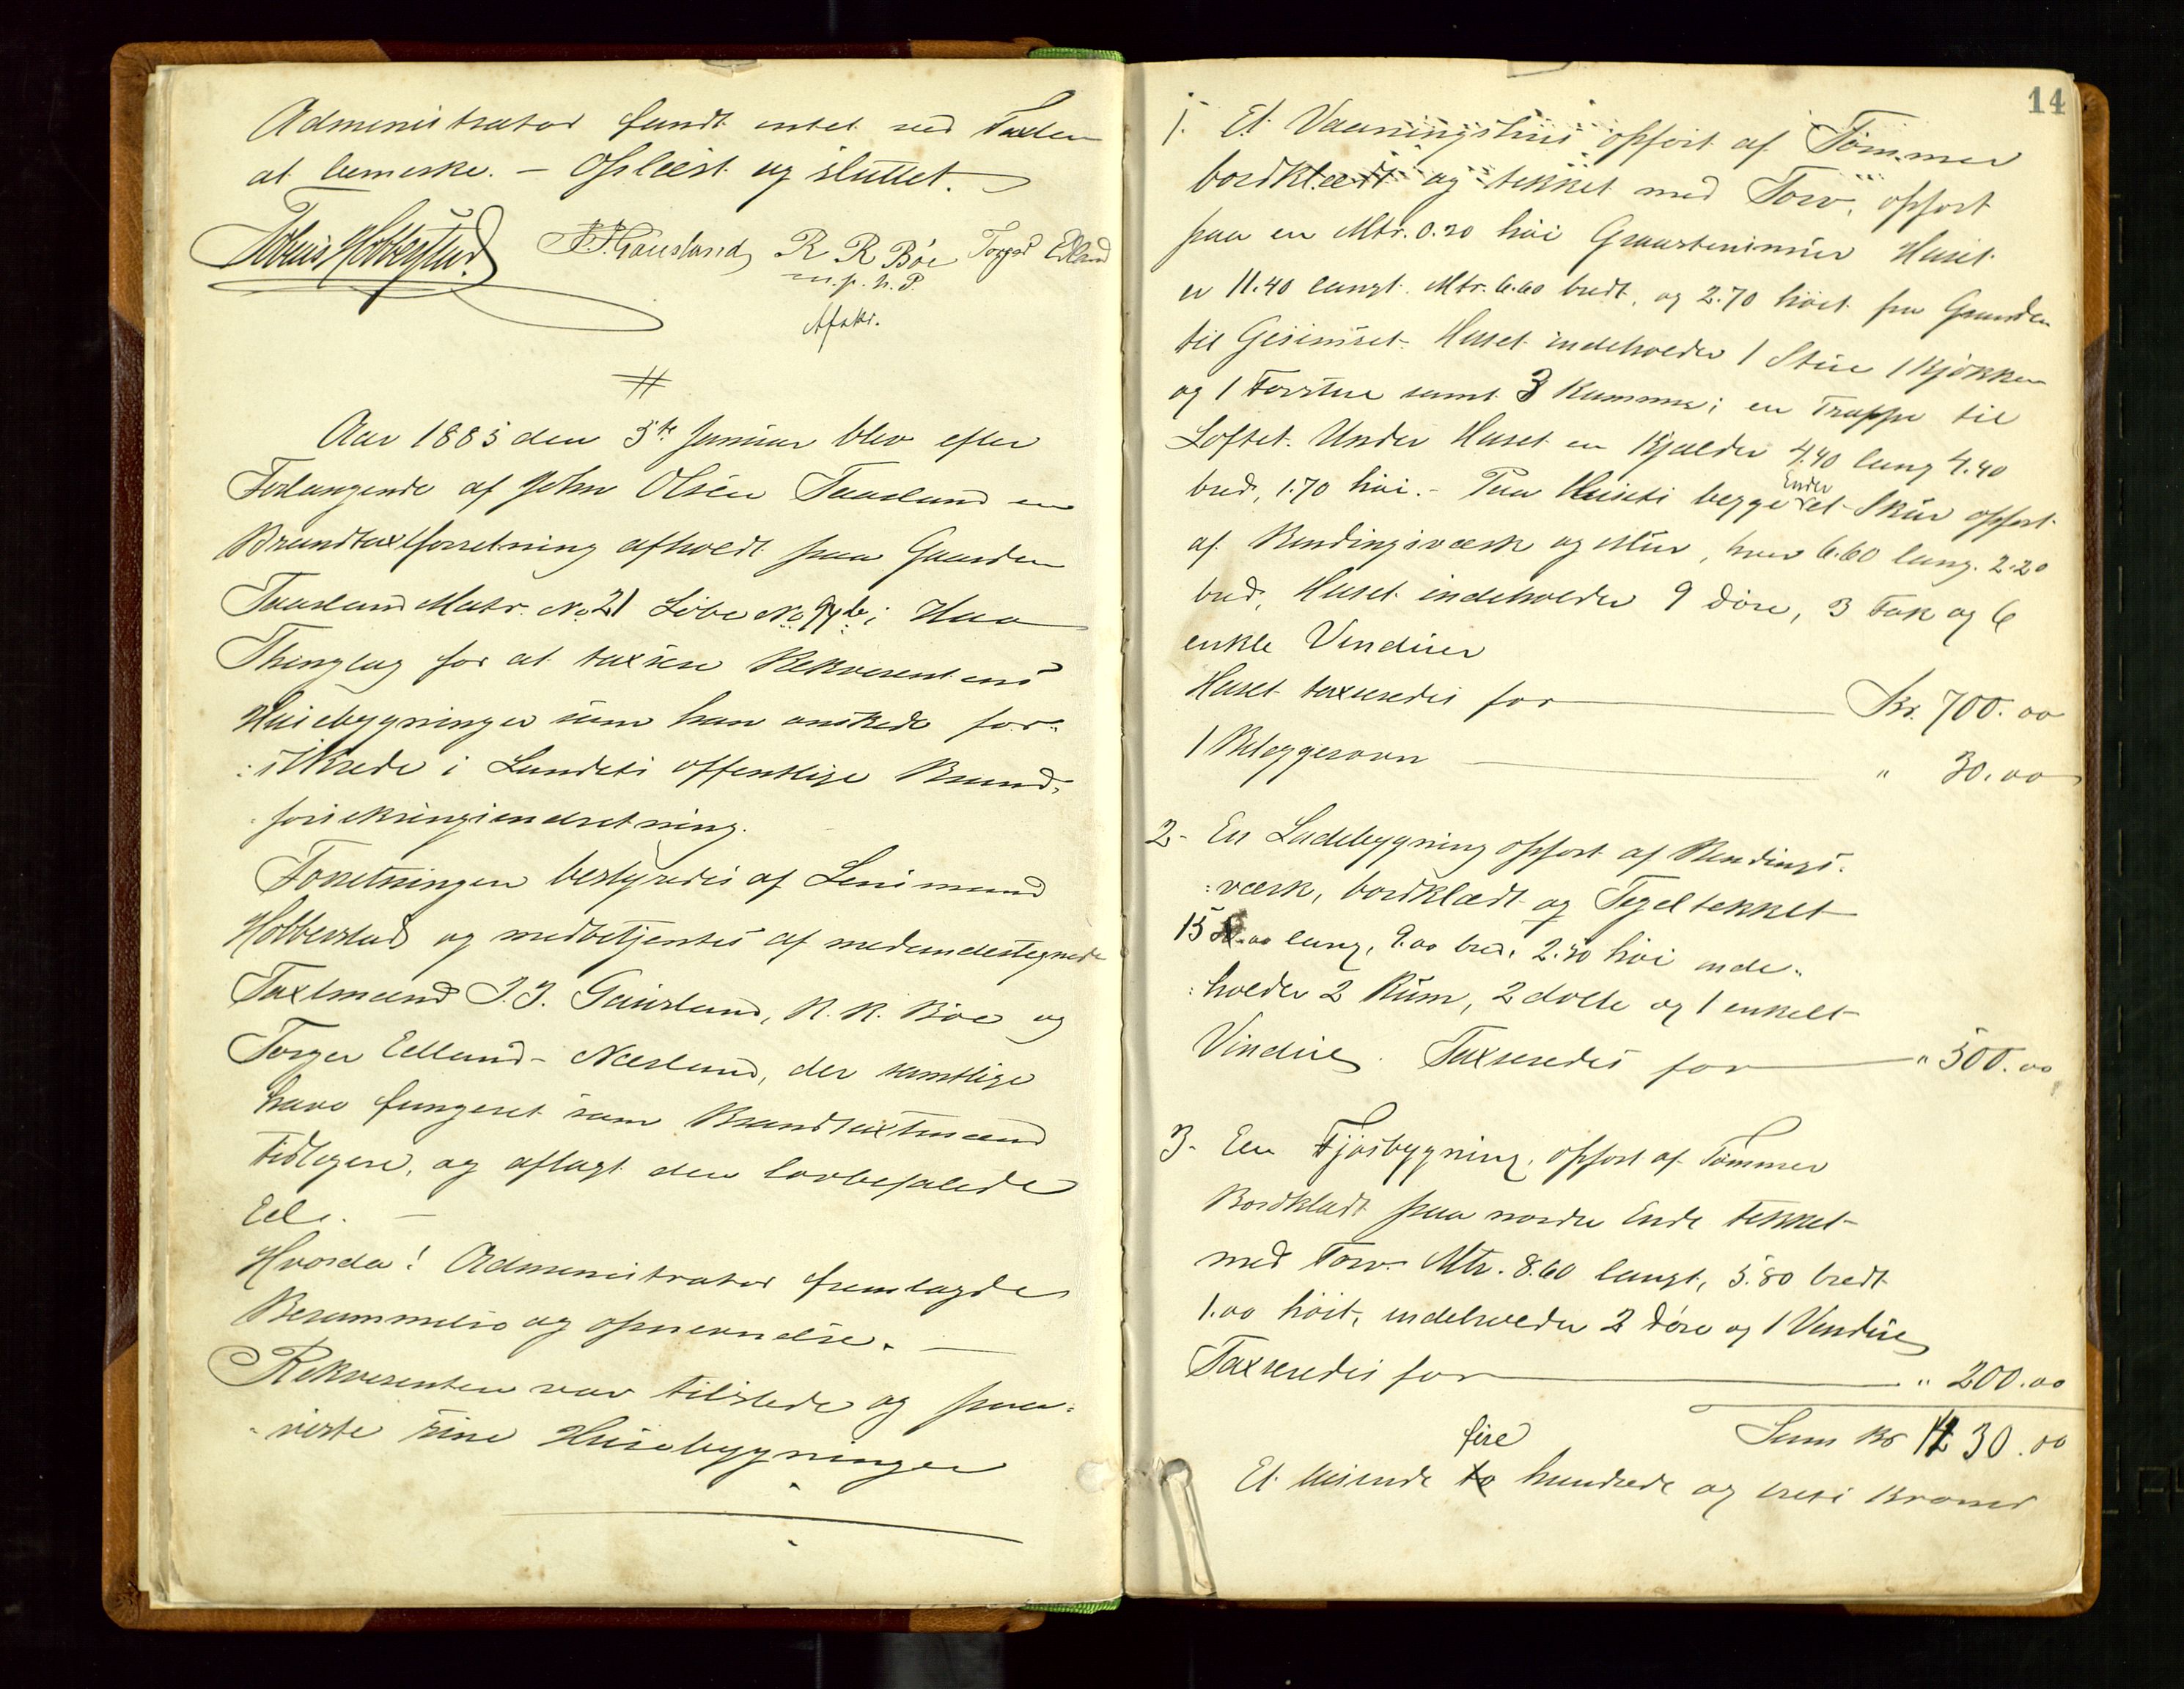 Administrator fandt intet ved Taxten
at bemerke. – Oplæst og sluttet.
Tobias Hobberstad. J. J. Gausland R R Böe Torger Edland
m. p. h. P.
Afskr.
#
Aar 1885 den 5te Januar blev efter
Forlangende af John Olsen Taarland en
Brandtaxtforretning afholdt paa Gaarden
Taarland Matr. No 21 Löbe No 97b i Haa
Thinglag for at taxere Rekvirentens
Husebygninger som han önskede for-
:sikrede i Landets offentlige Brand-
forsikringsindretning.
Forretningen bestyredes af Lensmand
Hobberstad og medbetjentes af medundertegnede
Taxtmænd J. J. Gausland, R. R. Böe og
Torger Edland-Nærland, der samtlige
have fungeret som Brandtaxtmænd
tidligere, og aflagt den lovbefalede
Eed. –
Hvorda! Administrator fremlagde
Berammelse og opnævnelse. –
Rekvirenten var tilstede og paa-
viste sine Husebygninger
14
1. Et Vaaningshus opfört af Tömmer
bordklædt og tækket med Torv, opfört
paa en Mtr. 0.20 höi Graastensmur Huset
er 11.40 langt. Mtr. 6.60 bredt, og 2.70 höit fra Grunden
til Gesimset. Huset indeholder 1 Stue 1 Kjökken
og 1 Forstue samt 3 Kammer; en Trappe til
Loftet. Under Huset en Kjælder 4.40 lang 4.40
bred, 1.70 höi. – Paa Husets begge Ender et Skur opfört
af Bindingsværk og Mur, hver 6.60 lang. 2.20
bred, Huset indeholder 9 döre, 3 Fag og 6
enkle Vinduer
Huset taxeredes for Kr. 700.00
1 Bilæggerovn " 30.00
2- En Ladebygning opfört af Bindings-
:værk, bordklædt og Tegltækket
15.00 lang, 9.00 bred, 2.50 höi inde-
:holder 2 Rum, 2 dolte og 1 enkelt
Vindue. Taxeredes for " 500.00
3- En Fjösbygning, opfört af Tömmer
Bordklædt paa nordre Ende tækket
med Torv Mtr. 8.60 langt, 5.80 bredt
1.00 höit, indeholder 2 döre og 1 Vindue
Taxeredes for " 200.00
Sum Kr 1430.00
Et tusinde to fire hundrede og treti Kroner